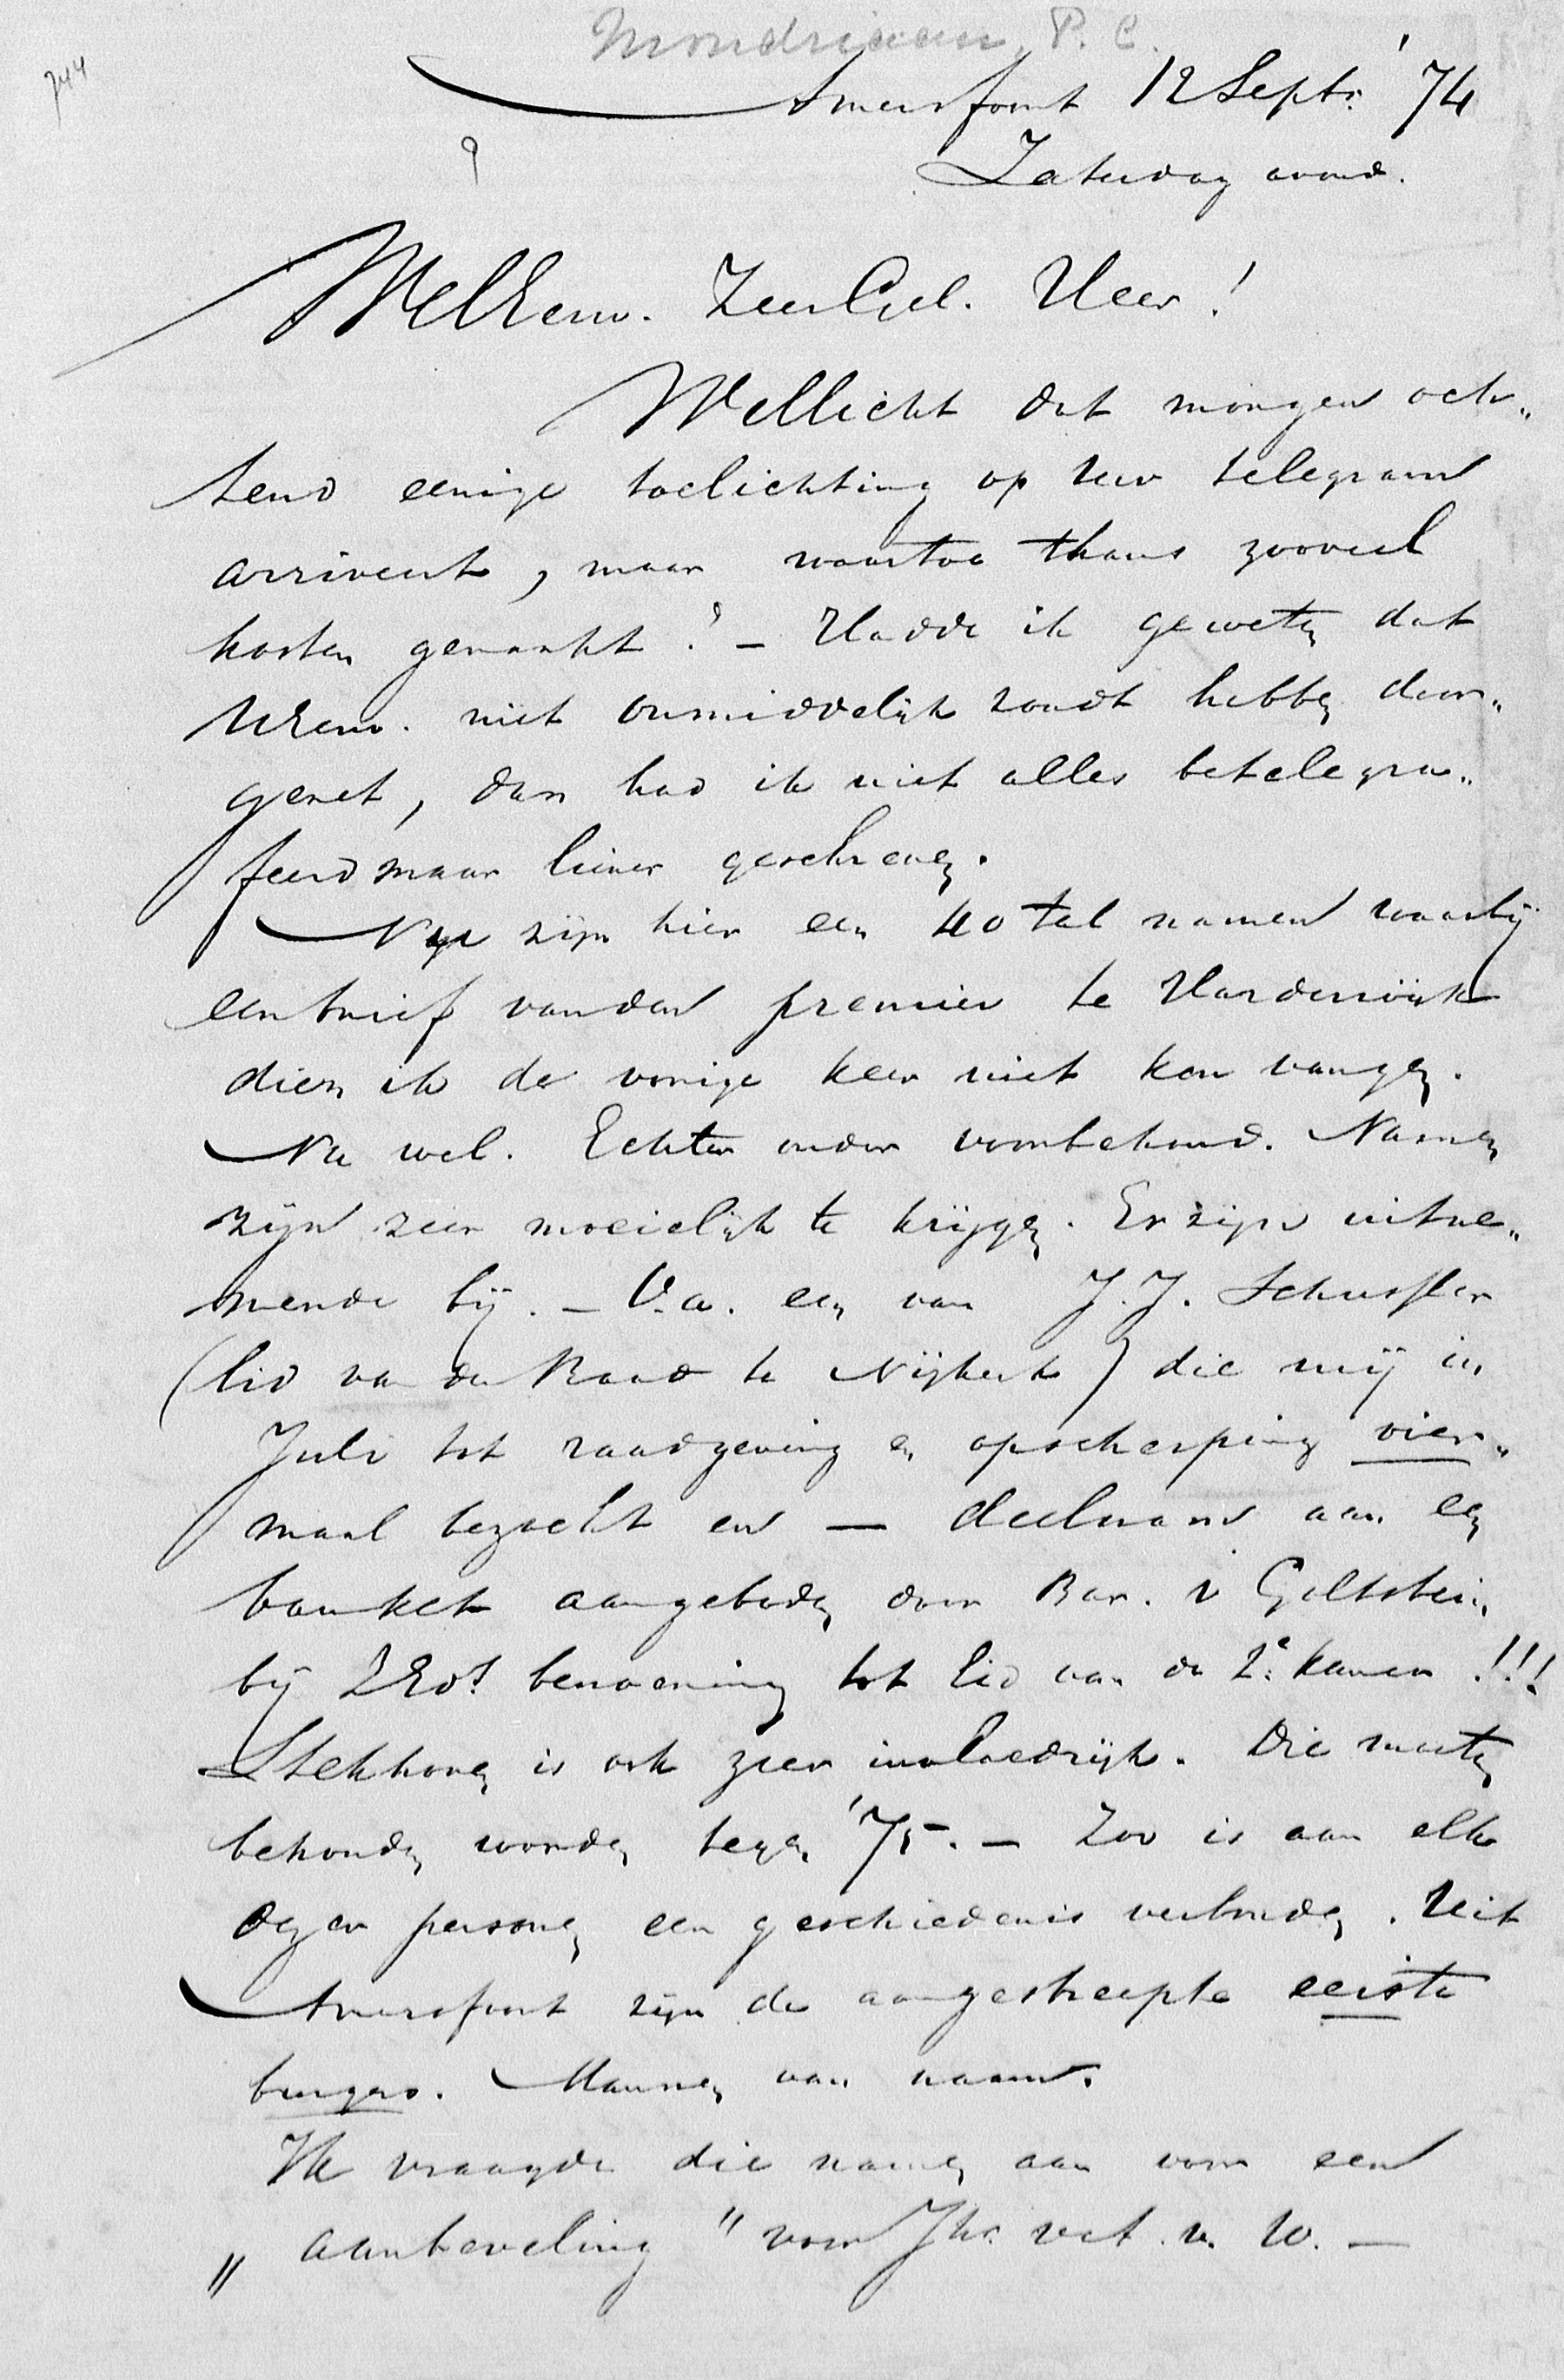 Mondriaan, P. C.
744
Amersfoort 12 Septr. '74
Zaturdag avond.
WelEerw. ZeerGel. Heer!
Wellicht dat morgen och„
tend eenige toelichting op Uw telegram
arriveert, maar waartoe thans zooveel
kosten gemaakt? – Hadde ik geweten dat
UEerw. niet onmiddelijk zoudt hebben door„
gezet, dan had ik niet alles betelegra„
feerd maar liever geschreven.
Nu zijn hier een 40 tal namen waarbij
een brief van den premier te Harderwijk
dien ik de vorige keer niet kon vangen.
Nu wel. Echter onder voorbehoud. Namen
zijn zeer moeielijk te krijgen. Er zijn uitne„
mende bij. – O.a. een van J. J. Schussler
(lid van den Raad te Nijkerk) die mij in
Juli tot raadgeving en opscherping vier„
maal bezocht en — deelnam aan een
banket aangeboden door Bar. v Goltstein
bij ZEds. benoeming tot lid van de 2e kamer!!!
Stekhoven is ook zeer invloedrijk. Die moeten
behouden worden tegen '75. – Zoo is aan elk
dezer personen een geschiedenis verbonden. Uit
Amersfoort zijn de aangestreepte eerste
burgers. Mannen van naam.
Ik vraagde die namen aan voor een
„aanbeveling" voor Jhr. v. W. —